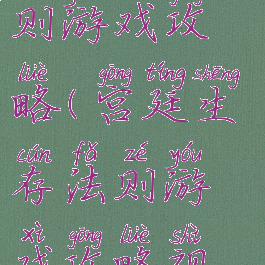 则游戏攻
lüè gōng tíng shēng
略(宫廷生
cún fǎ zé yóu
存法则游
xì gōng lüè shì
戏攻略视